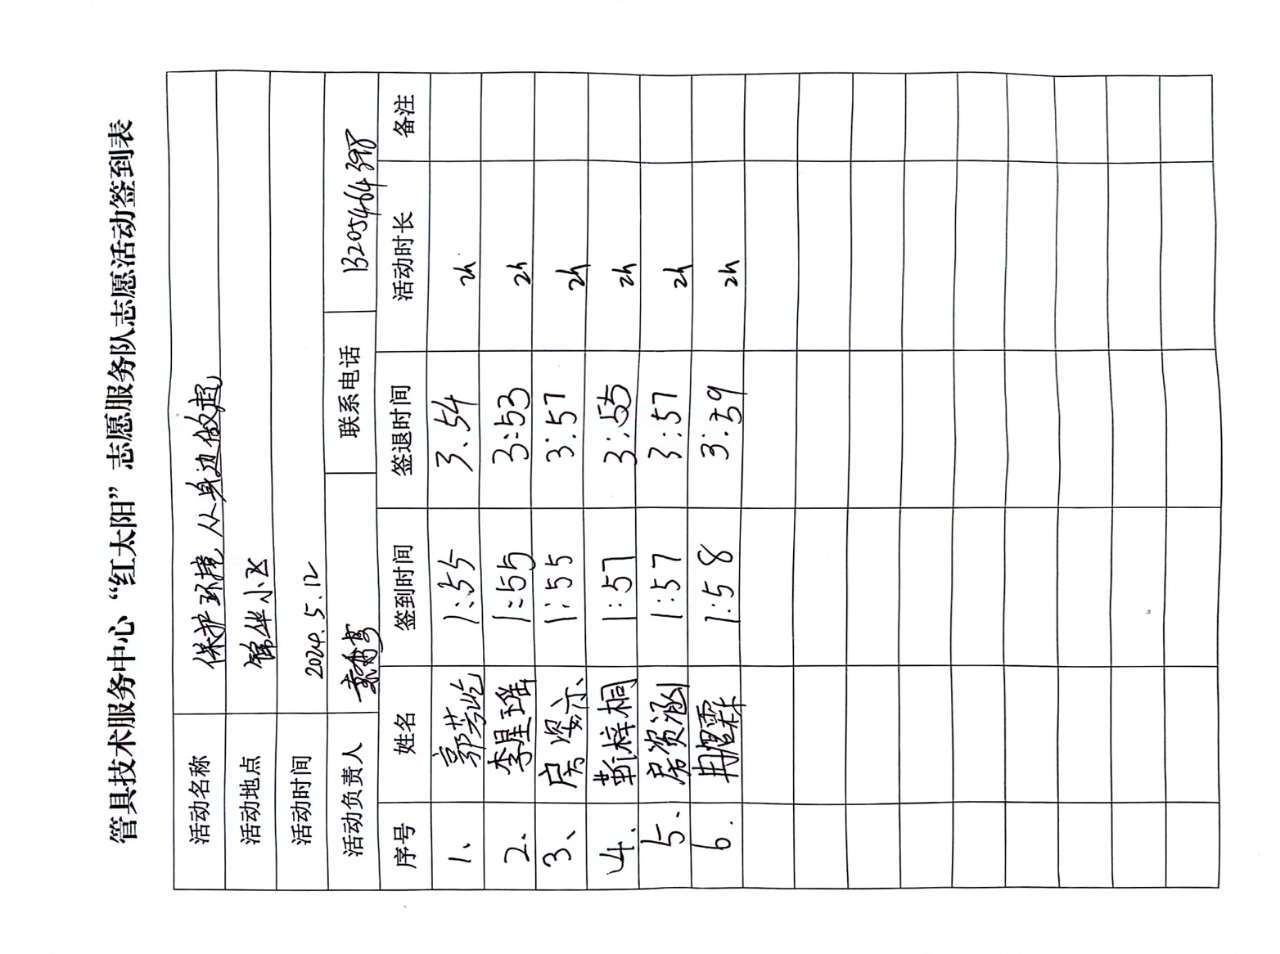 管具技术服务中心“红太阳”志愿服务队志愿活动签到表
活动名称 保护环境,从身边做起
活动地点 锦华小区
活动时间 2024.5.12
活动负责人 联系电话 13205464398
序号 姓名 签到时间 签退时间 活动时长 备注
1、 郭芳屹 1:55 3.54 2h
2、 李星瑶 1:55 3:53 2h
3、 房姿尔 1:55 3:57 2h
4、 靳梓桐 1:57 3:55 2h
5、 房资涵 1:57 3:57 2h
6. 1:58 3:59 2h